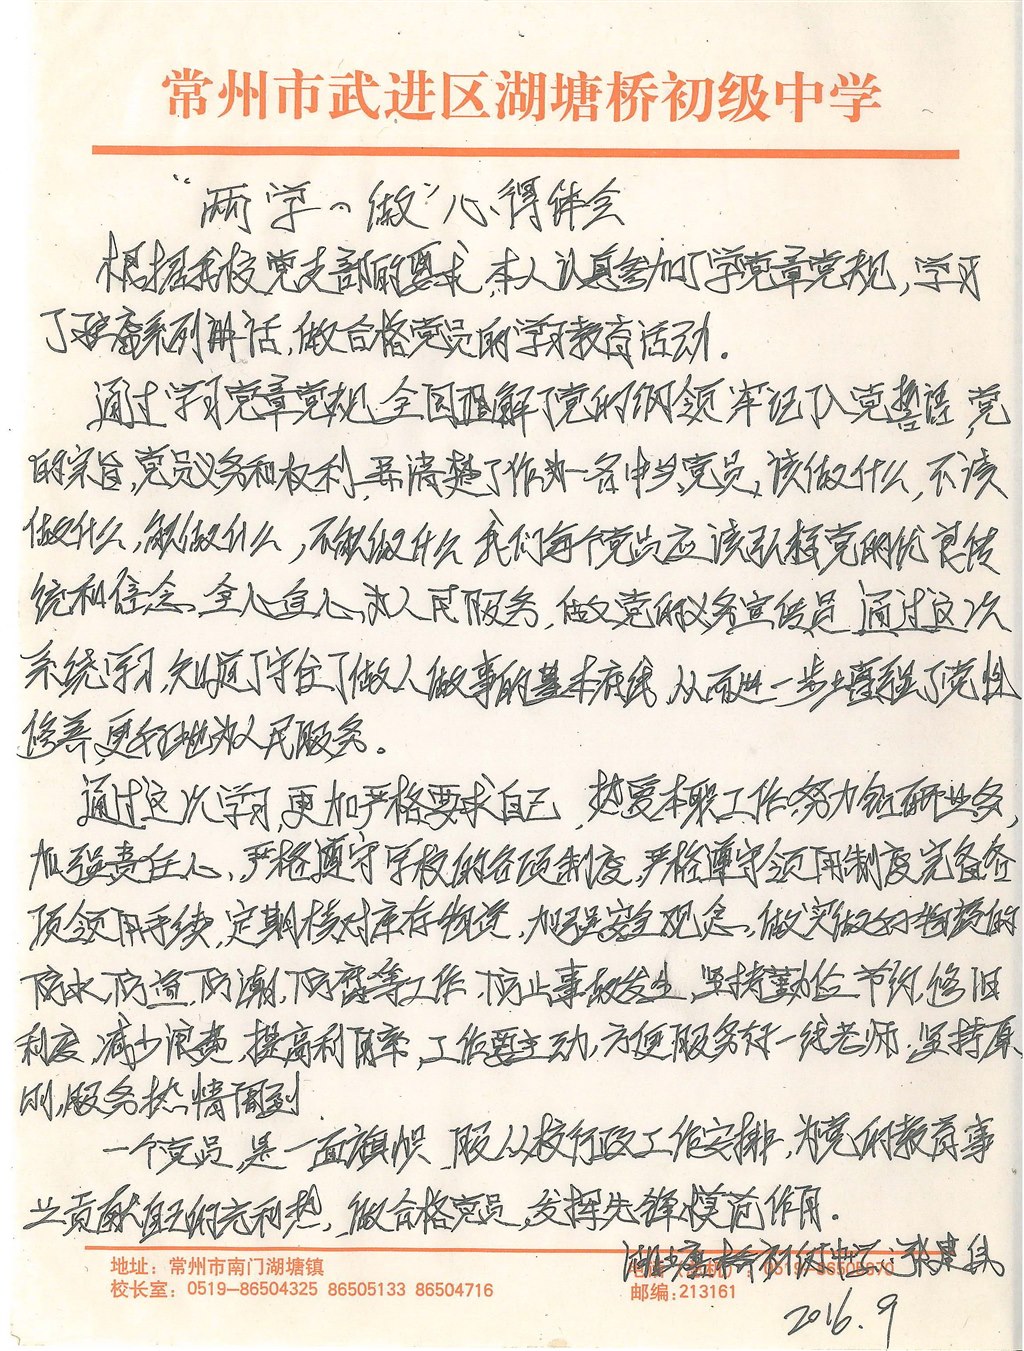 常州市武进区湖塘桥初级中学
“两学一做”心得体会
根据我校党支部的要求,本人认真参加了学党章党规,学习
了系列讲话,做合格党员的学习教育活动.
通过学习党章党规,全面理解了党的纲领,牢记了入党誓语,党
的宗旨,党员义务和权利,弄清楚了作为一名中共党员,该做什么,不该
做什么,能做什么,不能做什么.我们每个党员应该弘扬党的优良传
统和信念,全心全意为人民服务,做党的义务宣传员.通过这次
系统学习,知道了守住了做人做事的基本底线,从而进一步增强了党性
修养,更好地为人民服务。
通过这次学习,更加严格要求自己,热爱本职工作,努力钻研业务,
加强责任心,严格遵守学校的各项制度,严格遵守领用制度,完备各
项领用手续,定期核对库存物资,加强安全观念,做实做好物资的
防水,防盗,防潮,防腐等工作,防止事故发生,坚持勤俭节约,修旧
利废,减少浪费,提高利用率,工作要主动,方便服务好一线老师.坚持原
则,服务热情周到.
一个党员,是一面旗帜,服从校行政工作安排,为党的教育事
业贡献自己的光和热,做合格党员,发挥先锋模范作用.
湖塘桥初级中学:张建
地址：常州市南门湖塘镇
校长室：0519—86504325 86505133 86504716
邮编:213161
2016.9